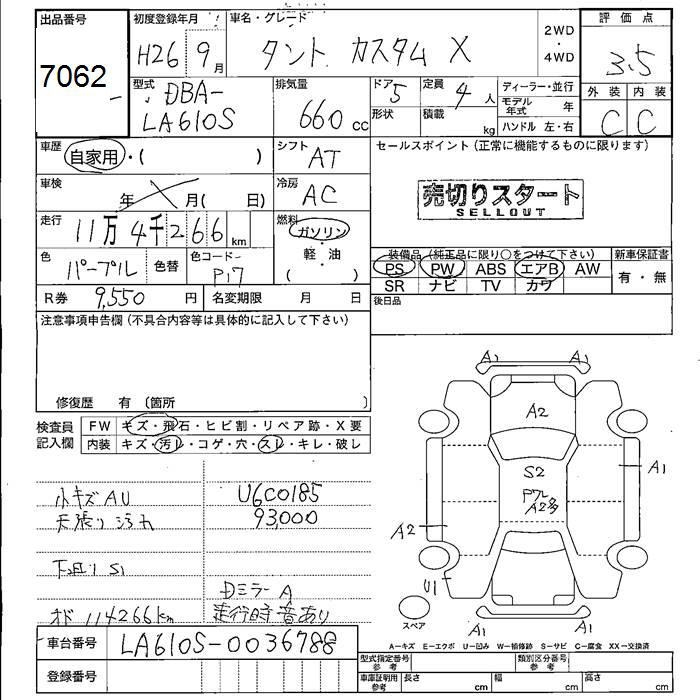 出品番号 初度登録年月 車名・グレード 評価点
7062 H26 9月 タント カスタム X 2WD・4WD 3.5
型式 DBA-LA610S 排気量 660cc ドア 5 定員 4人 ディーラー・並行 外装 内装
形状 積載 kg モデル年式 年 ハンドル 左・右 C C
車歴 自家用・( ) シフト AT セールスポイント (正常に機能するものに限ります)
車検 年 月( 日) 冷房 AC 売切りスタート
SELLOUT
走行 11万4千266km 燃料 ガソリン・軽・油( )
装備品 (純正品に限り○をつけて下さい) 新車保証書
色 パープル 色替 色コード P17 PS PW ABS エアB AW 有・無
SR ナビ TV カワ
R券 9,550円 名変期限 月 日 後日品
注意事項申告欄 (不具合内容等は具体的に記入して下さい)
修復歴 有 (箇所 )
検査員記入欄 FW キズ・飛石・ヒビ割・リペア跡・X要
内装 キズ・汚レ・コゲ・穴・スレ・キレ・破レ
小キズ AU U6C0185
天張り汚れ 93,000
下廻り S1
Dミラー A
オド 114266km 走行時音あり
A1 A1
A2
S2 A1
A2多
A2
U1
スペア A1 A1
A-キズ E-エクボ U-凹み W-補修跡 S-サビ C-腐食 XX-交換済
車台番号 LA610S-0036788
型式指定番号 参考 類別区分番号 参考
登録番号 車庫証明用 参考 長さ cm 幅 cm 高さ cm